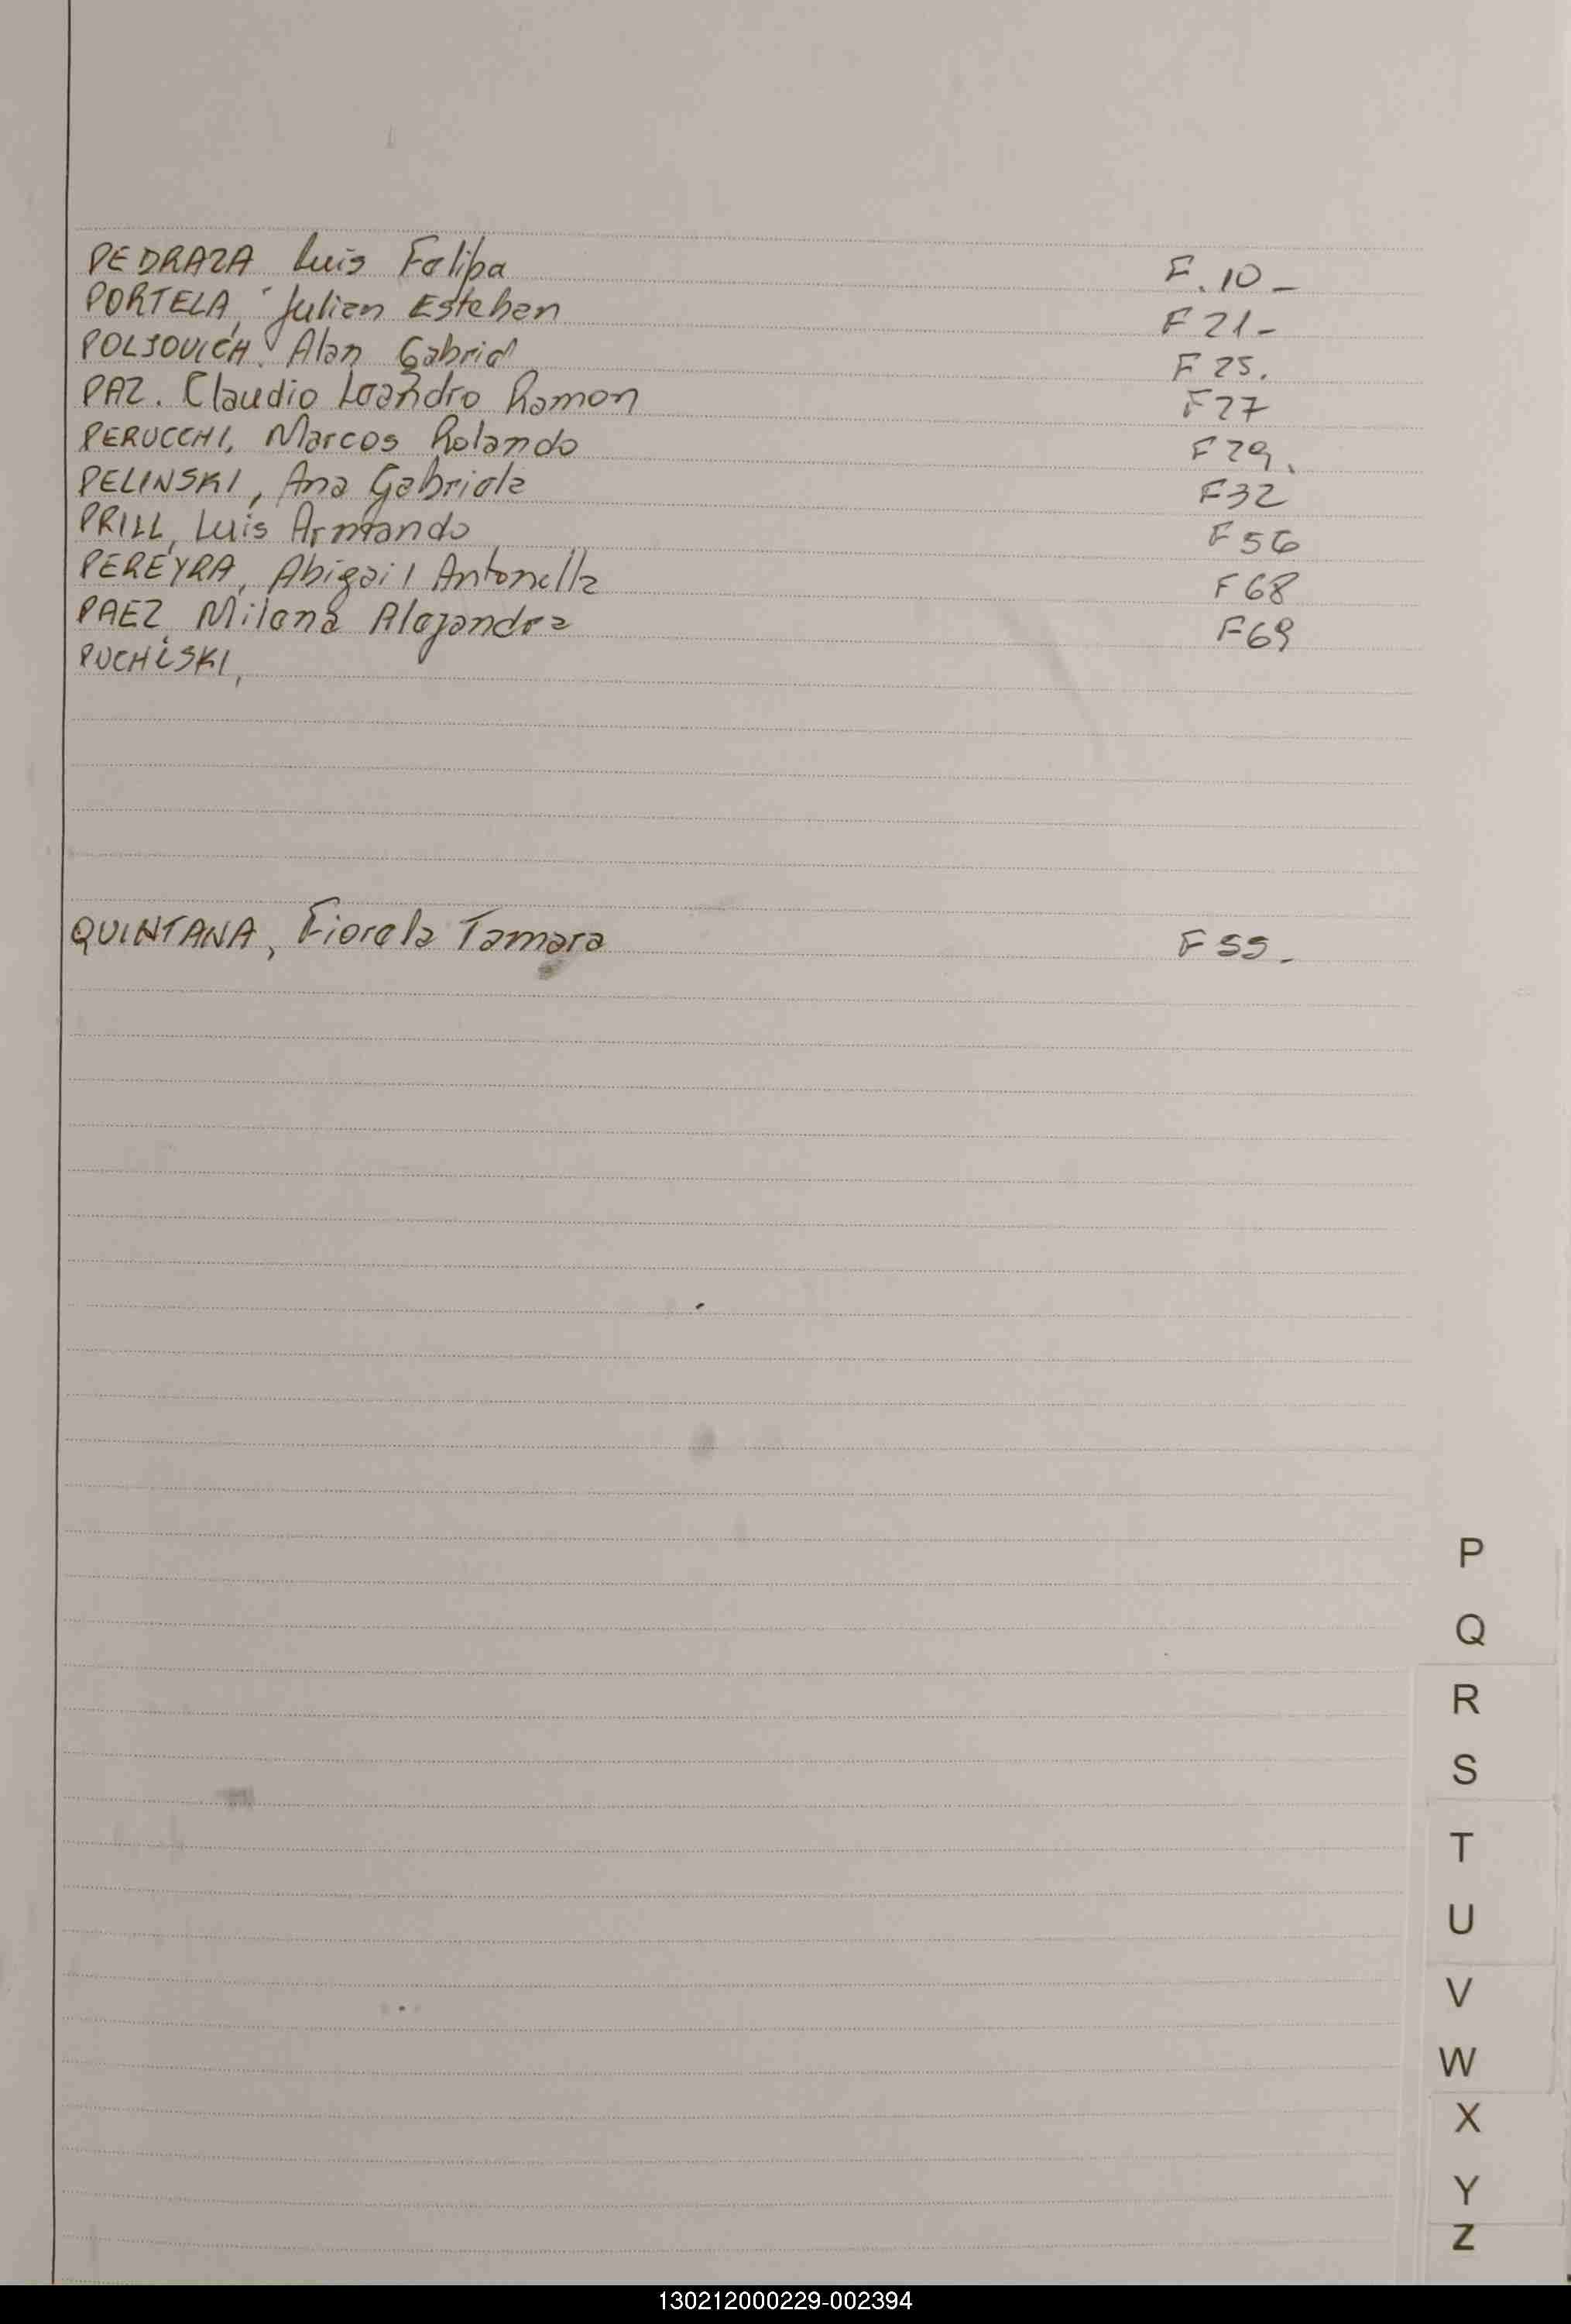 PEDRAZA Luis Felipe F. 10 -
PORTELA, Julian Esteban F 21 -
POLJOVICH. Alan Gabriel F 25.
PAZ. Claudio Leandro Ramon F 27
PERUCCHI, Marcos Rolando F 29.
PELINSKI, Ana Gabriela F 32
PRILL, Luis Armando F 56
PEREYRA, Abigail Antonella F 68
PAEZ Milena Alejandra F 69
PUCHISKI,
QUINTANA, Fiorela Tamara F 55.
P
Q
R
S
T
U
V
W
X
Y
Z
130212000229-002394